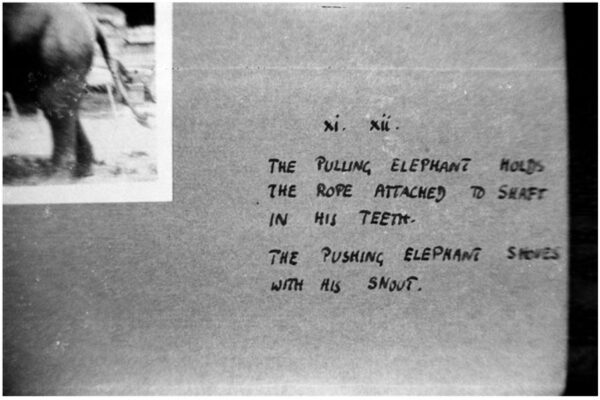 xi. xii.
THE PULLING ELEPHANT HOLDS
THE ROPE ATTACHED TO SHAFT
IN HIS TEETH.
THE PUSHING ELEPHANT SHOVES
WITH HIS SNOUT.